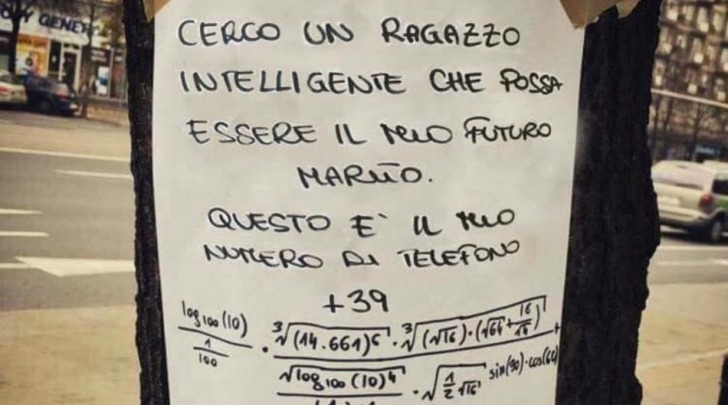 CERCO UN RAGAZZO
INTELLIGENTE CHE POSSA
ESSERE IL MIO FUTURO
MARITO.
QUESTO E' IL MIO
NUMERO DI TELEFONO
+39
log₁₀₀(10) / (1/100) · ∛(14.661)⁶ · ∛(√16)·(√64+16/√16) +
√log₁₀₀(10)⁴ · √(1/2 √16) sin(90)·cos(60)